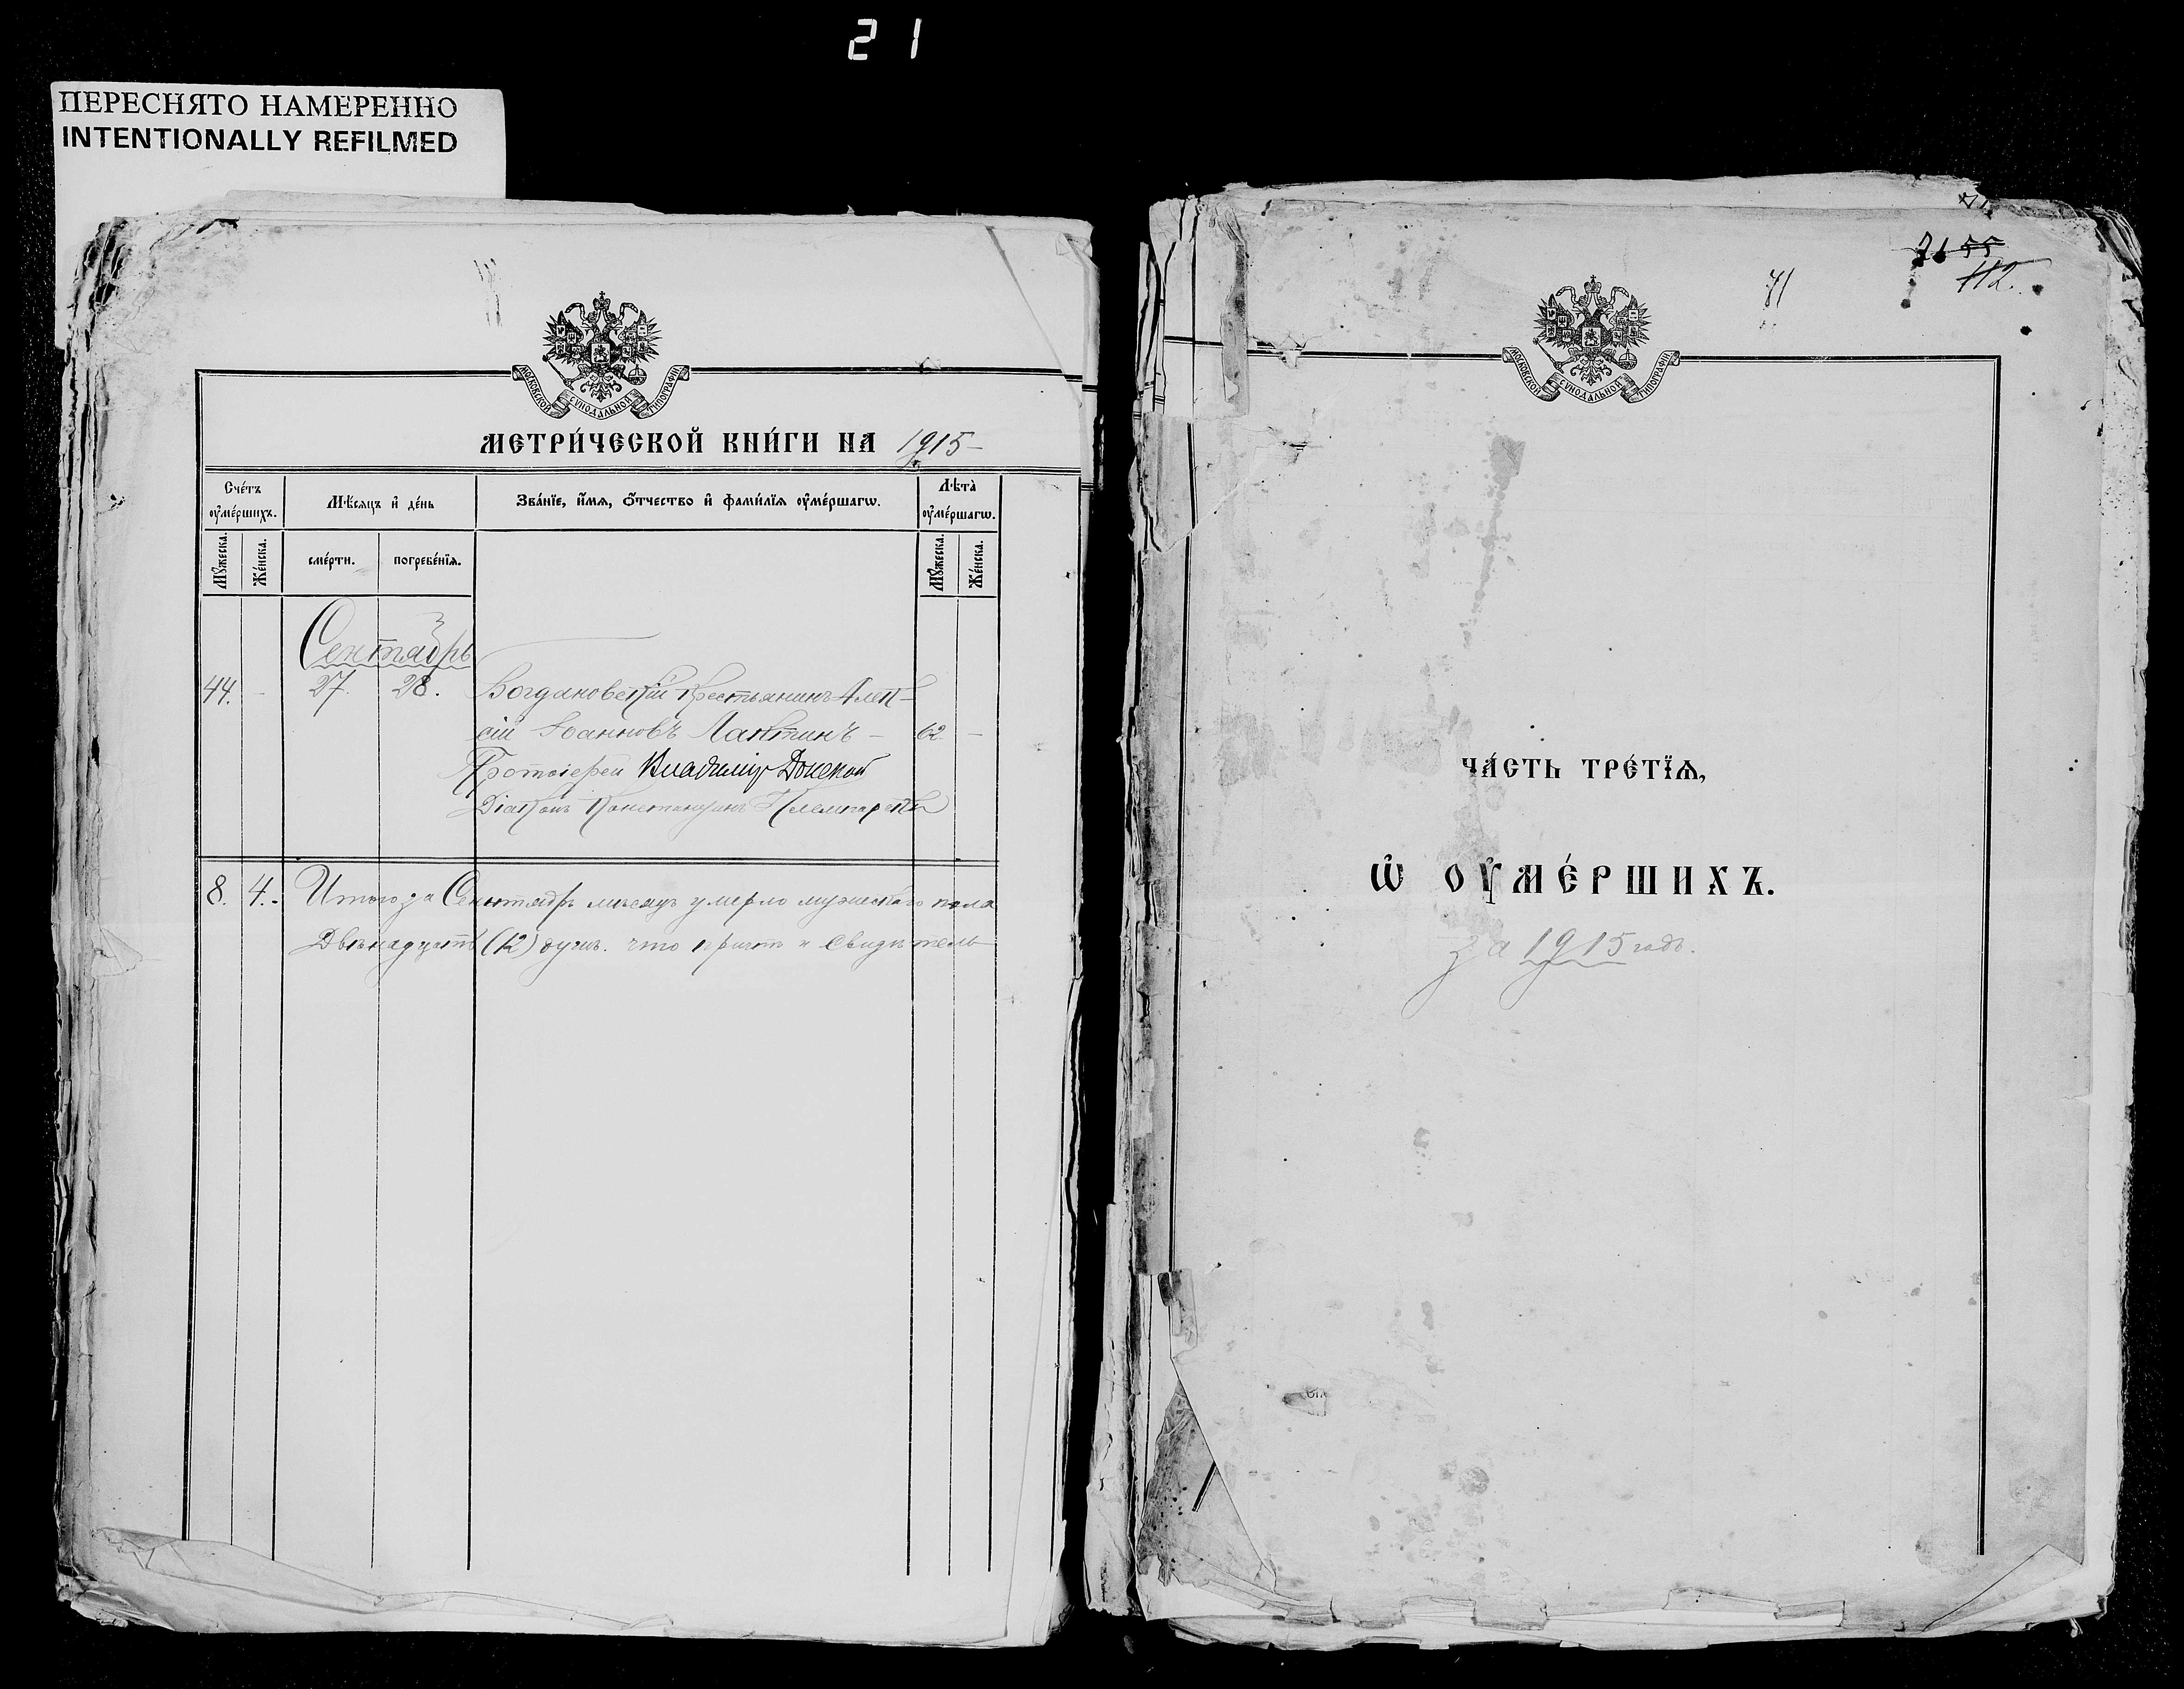 21
ПЕРЕСНЯТО НАМЕРЕННО
INTENTIONALLY REFILMED
МОСКОВСКОЙ СѴНОДАЛЬНОЙ ТИПОГРАФІИ
МЕТРИ́ЧЕСКОЙ КНИ́ГИ НА 1915
Сче́тъ оу҆ме́ршихъ.
Мѣ́сяцъ и҆ де́нь
Зва́нїе, и҆́мѧ, ѻ҆́тчество и҆ фами́лїѧ оу҆ме́ршагѡ.
Лѣ́та оу҆ме́ршагѡ.
Мꙋ́жеска.
Же́нска.
сме́рти.
погребе́нїѧ.
Мꙋ́жеска.
Же́нска.
Сентябрь
44. - 27. 28. Богдановскій крестьянинъ Алек-
сій Іоанновъ Лактинъ - 62 -
Протоіерей Владиміръ Донской
Діаконъ Константинъ
8. 4. Итого за Сентябрь месяцъ умерло мужескаго пола
Двѣнадцать (12) душъ. что причт и свидѣтель
71 55
112.
71
МОСКОВСКОЙ СѴНОДАЛЬНОЙ ТИПОГРАФІИ
ЧА́СТЬ ТРЕ́ТЇѦ,
Ѡ҆ ОУ҆МЕ́РШИХЪ.
за 1915 годъ.